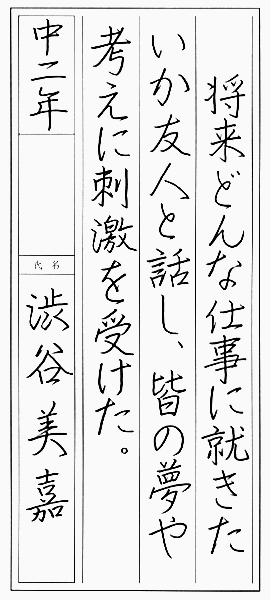 将来どんな仕事に就きた
いか友人と話し、皆の夢や
考えに刺激を受けた。
中二年
氏名
渋谷美嘉